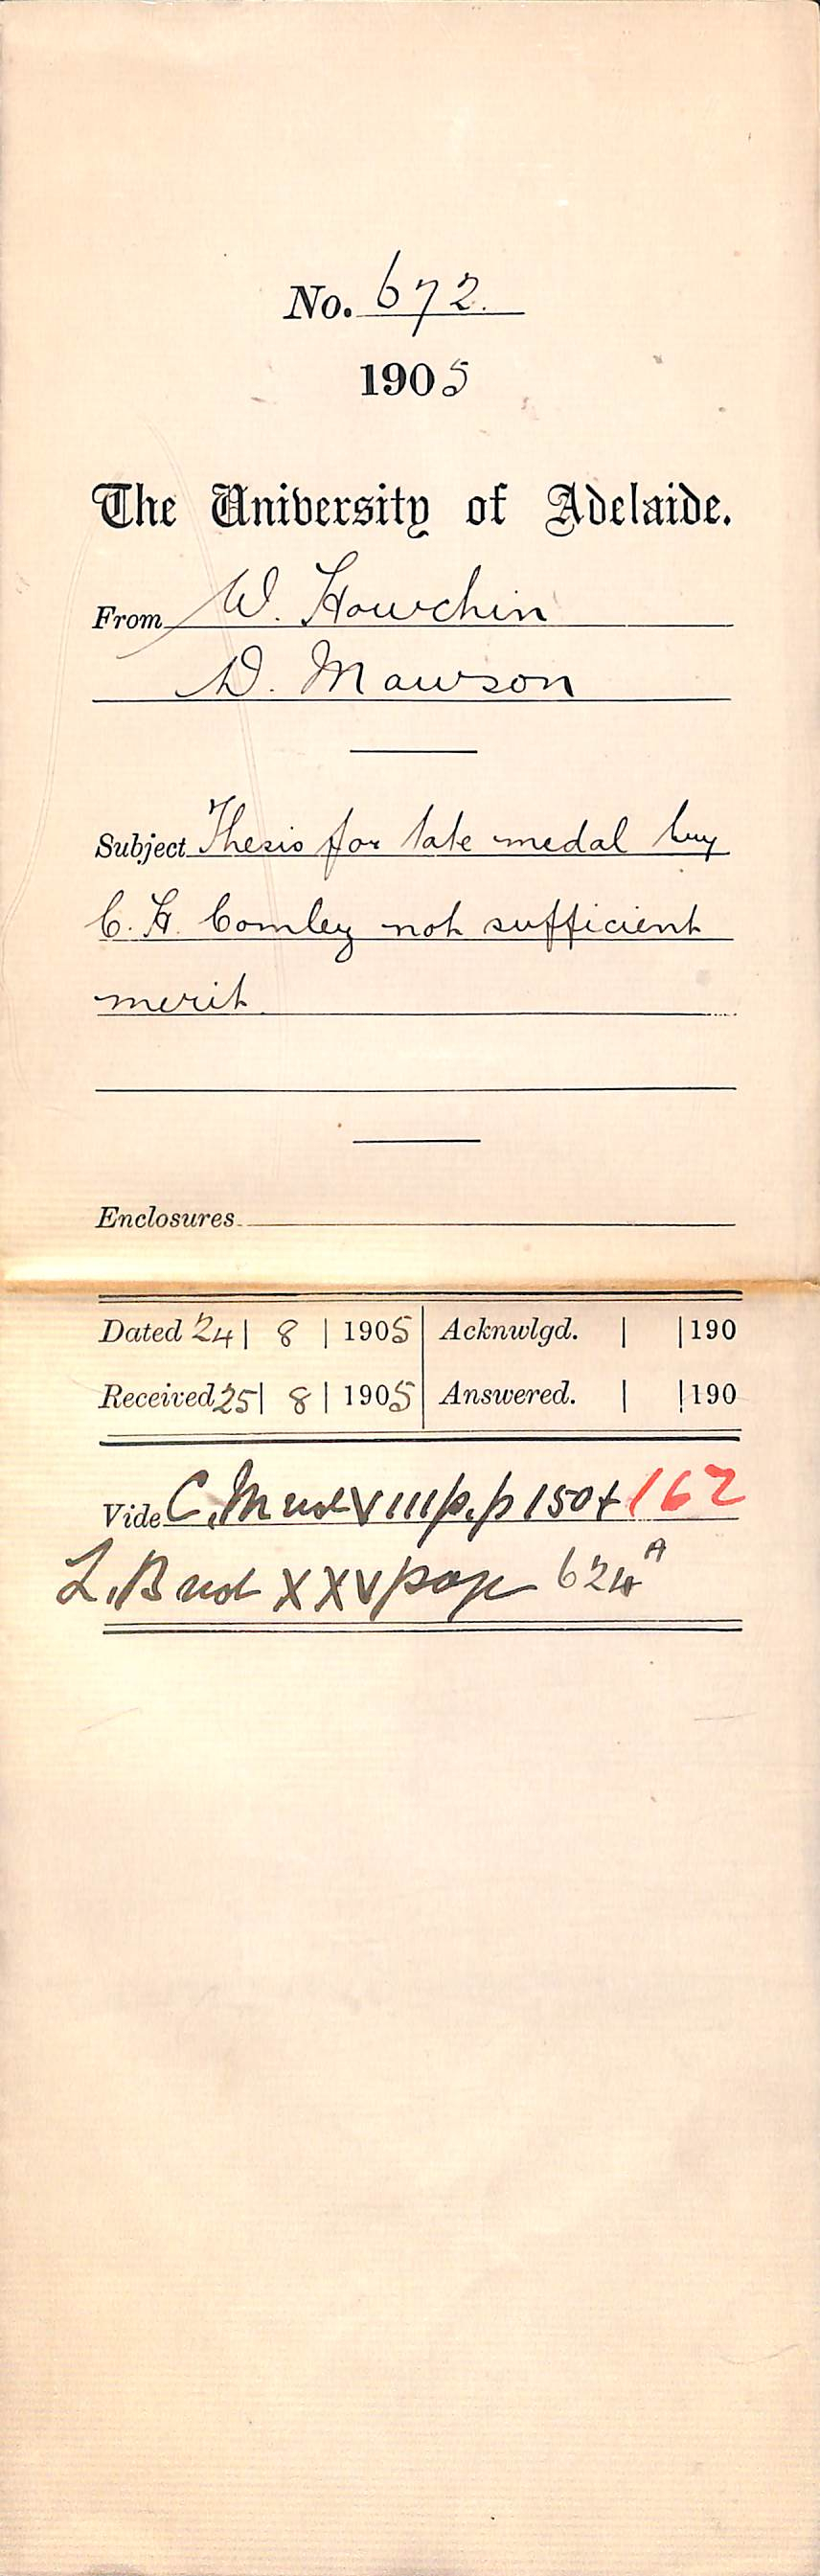 No. 672.
1905
The University of Adelaide.
From W. Howchin
D. Mawson
Subject Thesis for Tate medal by
C. H. Comley not sufficient
merit
Enclosures
Dated 24 | 8 | 1905 | Acknwlgd. | | 190
Received 25 | 8 | 1905 | Answered. | | 190
Vide C. M vol VIII p. p 150 + 162
L. B vol XXV page 624 A